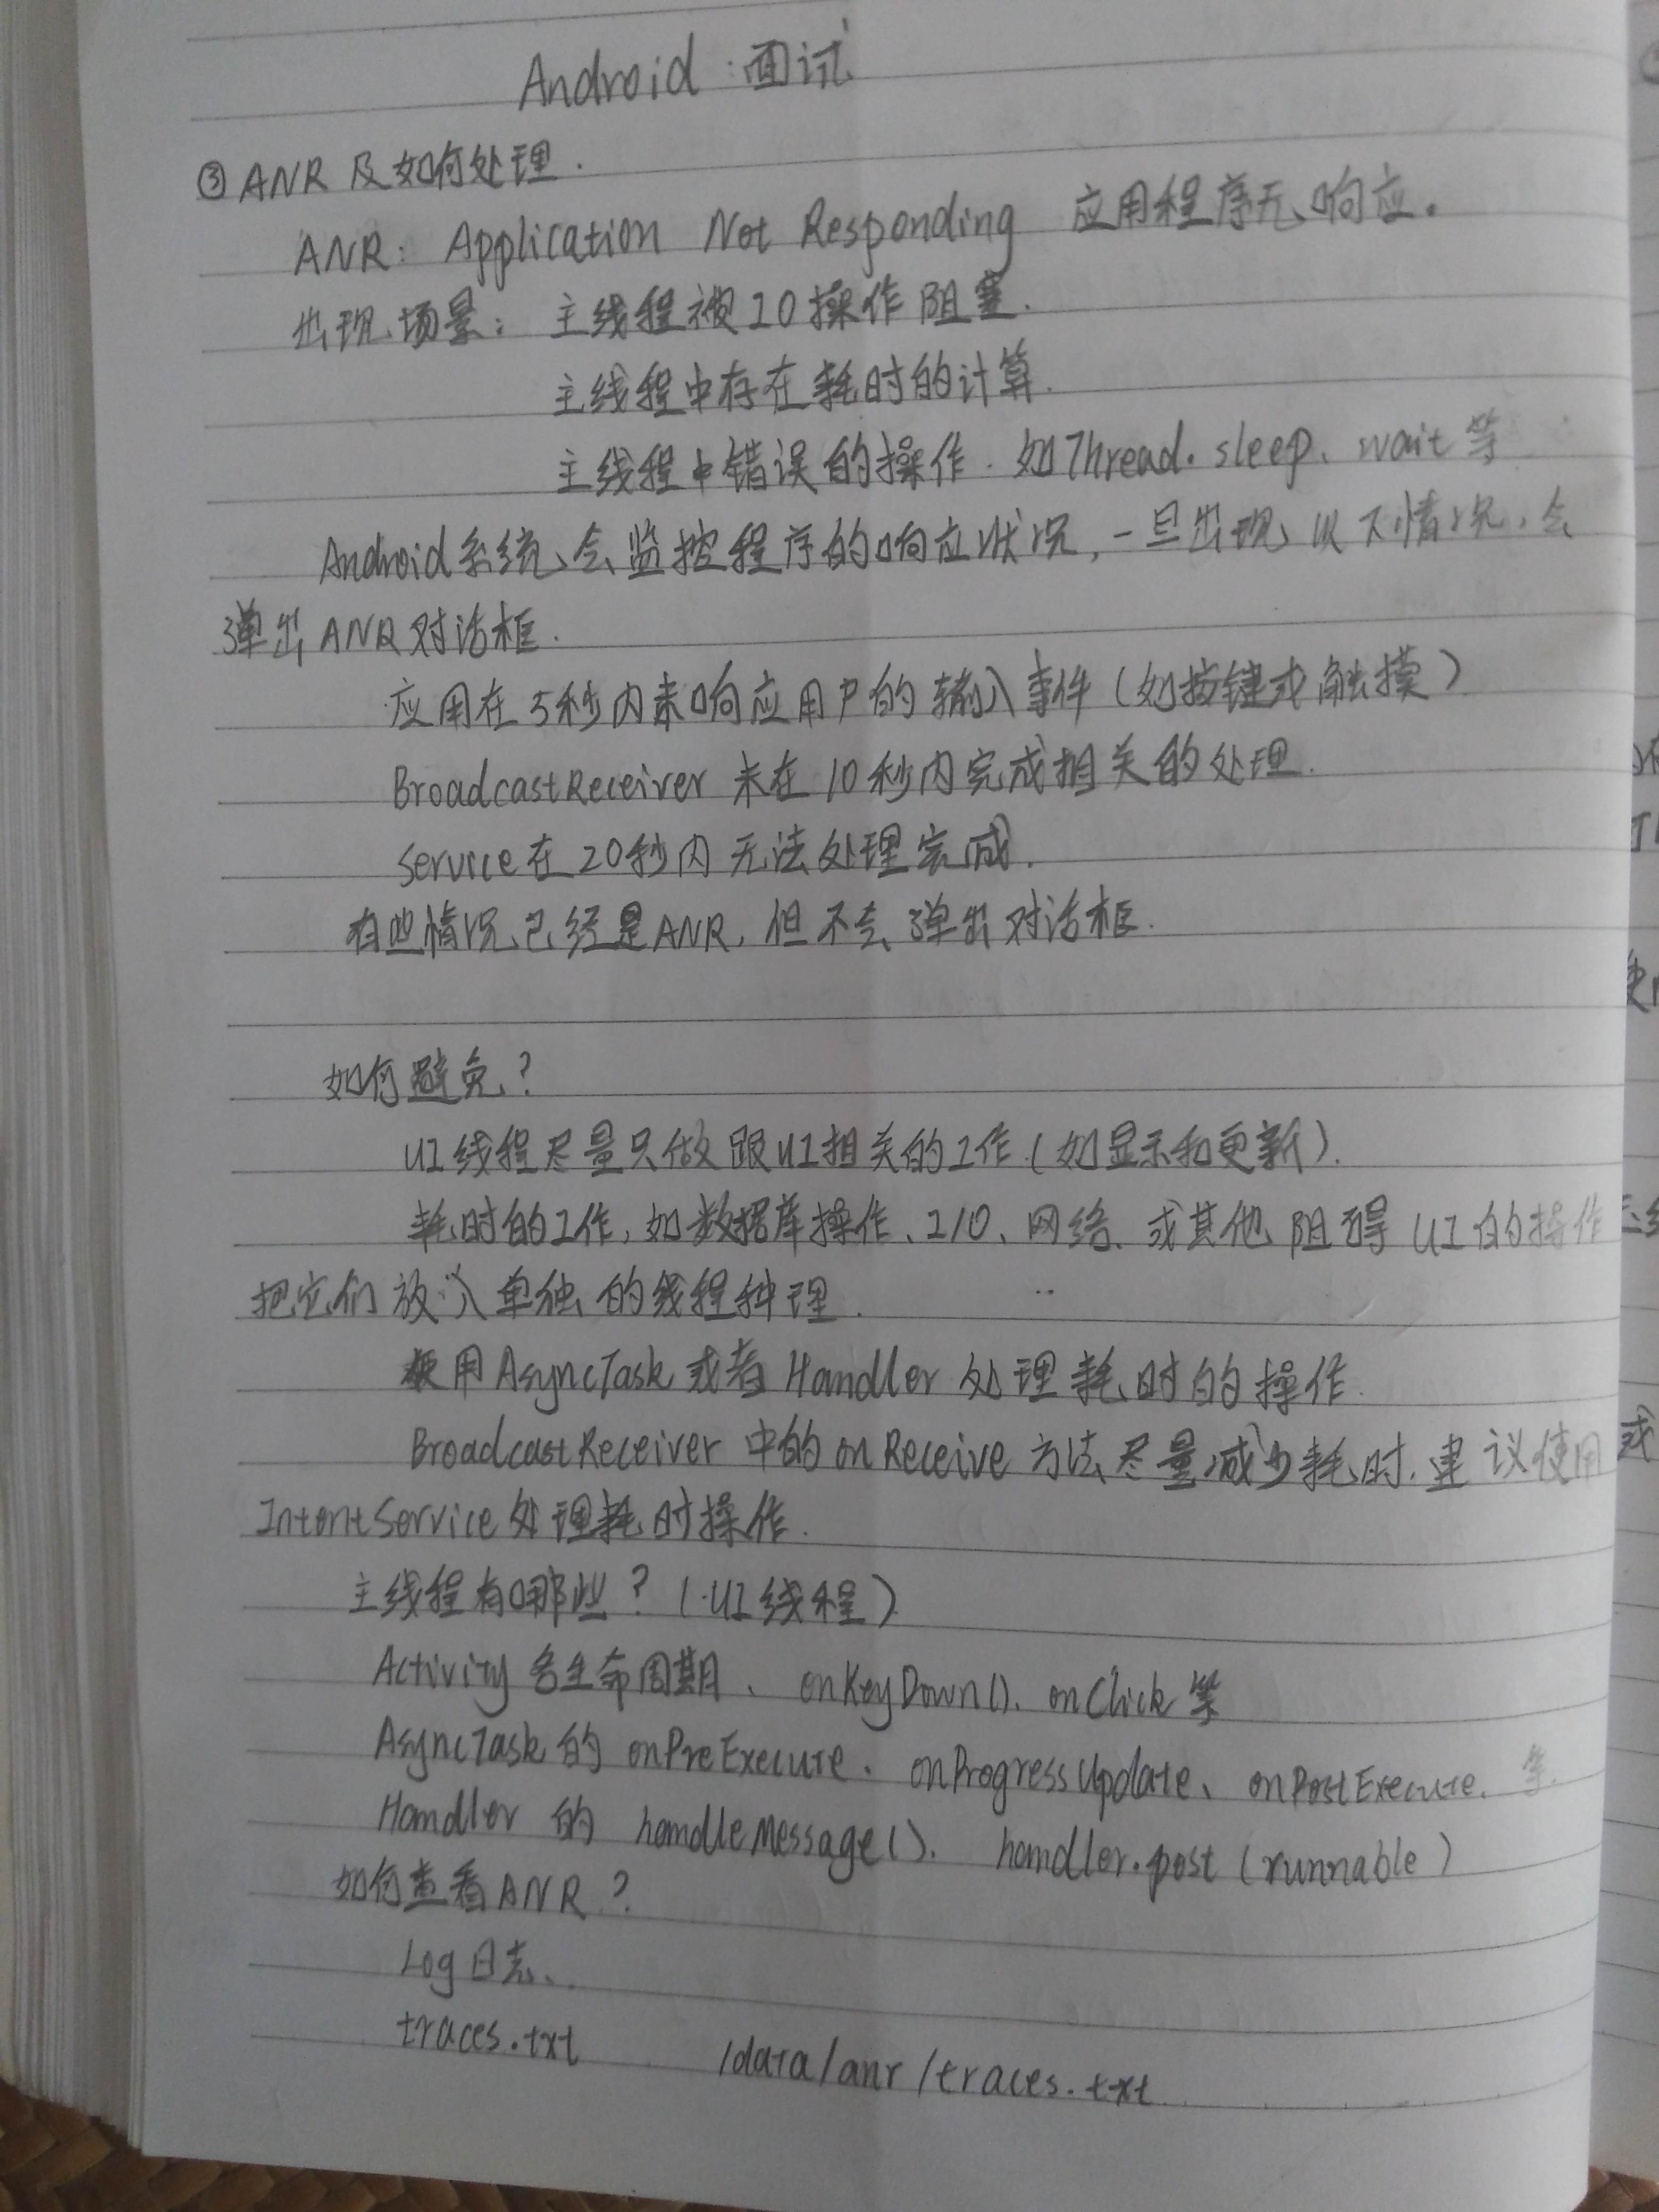 Android 面试
③ ANR 及如何处理.
ANR: Application Not Responding 应用程序无响应。
出现场景: 主线程被IO操作阻塞.
主线程中存在耗时的计算.
主线程中错误的操作. 如Thread.sleep、wait等
Android系统会监控程序的响应状况,一旦出现以下情况,会
弹出ANR对话框.
应用在5秒内未响应用户的输入事件(如按键或触摸)
BroadcastReceiver 未在10秒内完成相关的处理.
Service在20秒内无法处理完成.
有些情况已经是ANR,但不会弹出对话框.
如何避免?
UI线程尽量只做跟UI相关的工作(如显示和更新).
耗时的工作,如数据库操作、I/O、网络、或其他阻碍UI的操作
把它们放入单独的线程种理.
使用AsyncTask或者Handler处理耗时的操作.
BroadcastReceiver 中的onReceive方法尽量减少耗时.建议使用
IntentService处理耗时操作.
主线程有哪些?(UI线程)
Activity各生命周期、onKeyDown()、onClick等
AsyncTask的onPreExecute、onProgressUpdate、onPostExecute.等.
Handler的handleMessage()、handler.post(runnable)
如何查看ANR?
Log日志、
traces.txt /data/anr/traces.txt